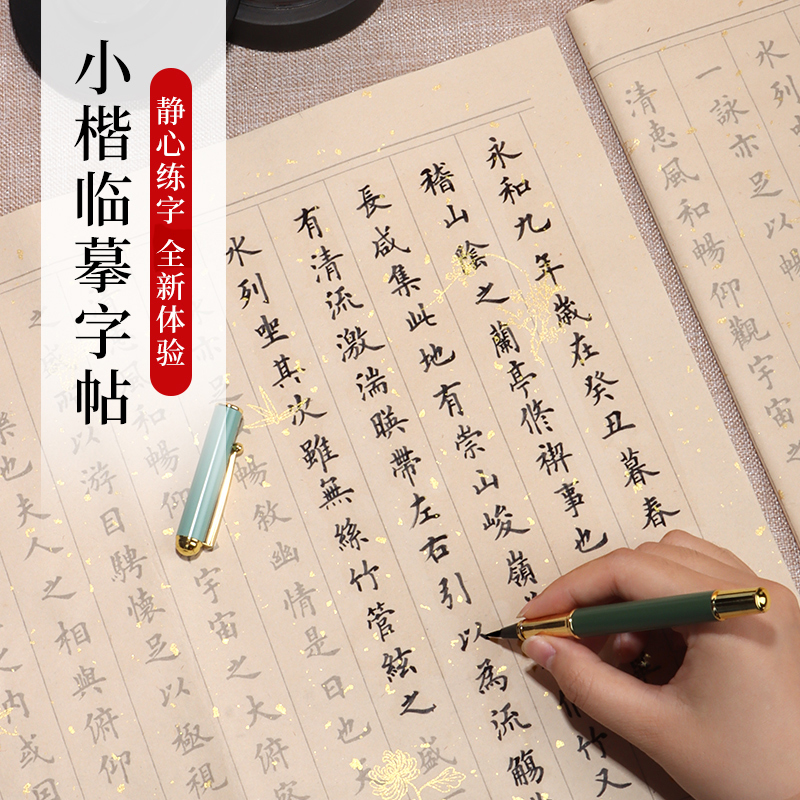 小楷临摹字帖
静心练字 全新体验
水列
一詠亦足以暢
清惠風和暢仰觀宇宙之
永和九年歲在癸丑暮春
稽山陰之蘭亭修禊事也
長咸集此地有崇山峻嶺
竹又
有清流激湍暎帶左右引以為流觴
水列坐其次雖無絲竹管絃之盛
亦足
暢敘幽情是日也
風和暢仰
宇宙之大俯察
所以游目騁懷足以極視
之
樂也夫人之相與俯仰
之内或因